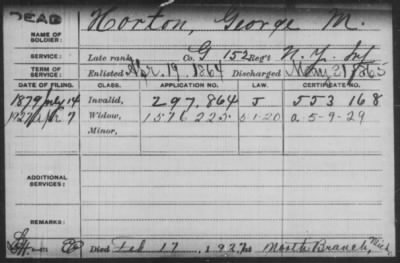 DEAD
NAME OF SOLDIER: Horton, George M.
SERVICE: Late rank Co. G 152 Reg't N.Y. Inf
TERM OF SERVICE: Enlisted Apr. 19, 1864 Discharged May 21 1865
DATE OF FILING. CLASS. APPLICATION NO. LAW. CERTIFICATE NO.
1879 July 14 Invalid, 297.864 J 553 168
1927 Apr 7 Widow, 1576225 5-1-20 a. 5-9-29
Minor,
ADDITIONAL SERVICES:
REMARKS:
Died Feb 17, 1927 at North Branch, Mich